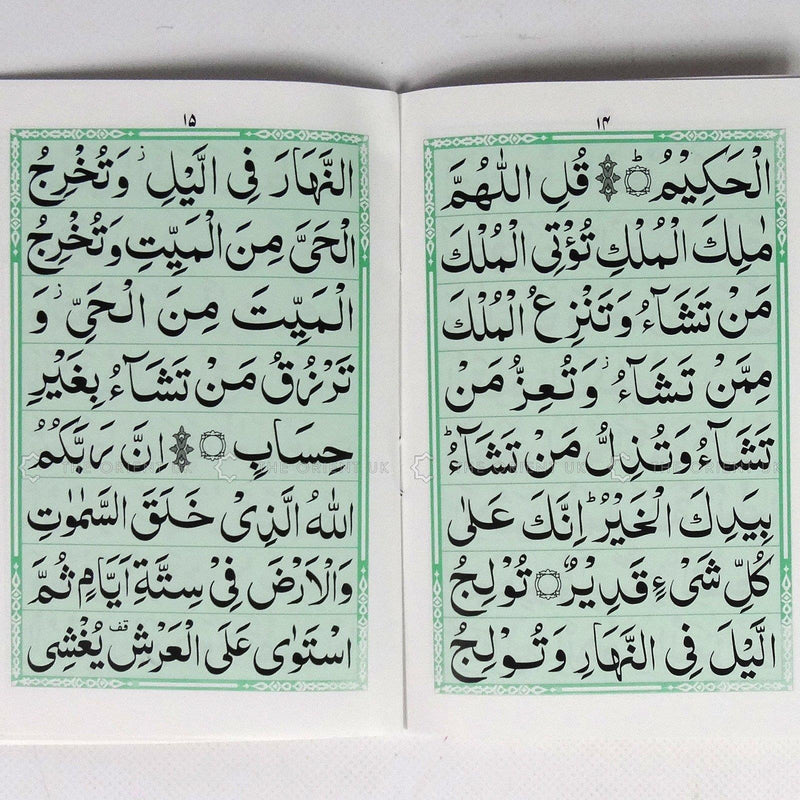 ۱۴
الْحَكِيْمُ ؕ قُلِ اللّٰهُمَّ
مٰلِكَ الْمُلْكِ تُؤْتِی الْمُلْكَ
مَنْ تَشَآءُ وَتَنْزِعُ الْمُلْكَ
مِمَّنْ تَشَآءُ ۫ وَتُعِزُّ مَنْ
تَشَآءُ وَتُذِلُّ مَنْ تَشَآءُ ؕ
بِيَدِكَ الْخَيْرُ ؕ اِنَّكَ عَلٰى
كُلِّ شَیْءٍ قَدِيْرٌ ۝ تُوْلِجُ
الَّيْلَ فِی النَّهَارِ وَتُوْلِجُ
۱۵
النَّهَارَ فِی الَّيْلِ ۫ وَتُخْرِجُ
الْحَیَّ مِنَ الْمَيِّتِ وَتُخْرِجُ
الْمَيِّتَ مِنَ الْحَیِّ ۫ وَ
تَرْزُقُ مَنْ تَشَآءُ بِغَيْرِ
حِسَابٍ ۝ اِنَّ رَبَّكُمُ
اللّٰهُ الَّذِیْ خَلَقَ السَّمٰوٰتِ
وَالْاَرْضَ فِیْ سِتَّةِ اَيَّامٍ ثُمَّ
اسْتَوٰی عَلَی الْعَرْشِ قف يُغْشِی
THE ORIENT UK THE ORIENT UK THE ORIENT UK